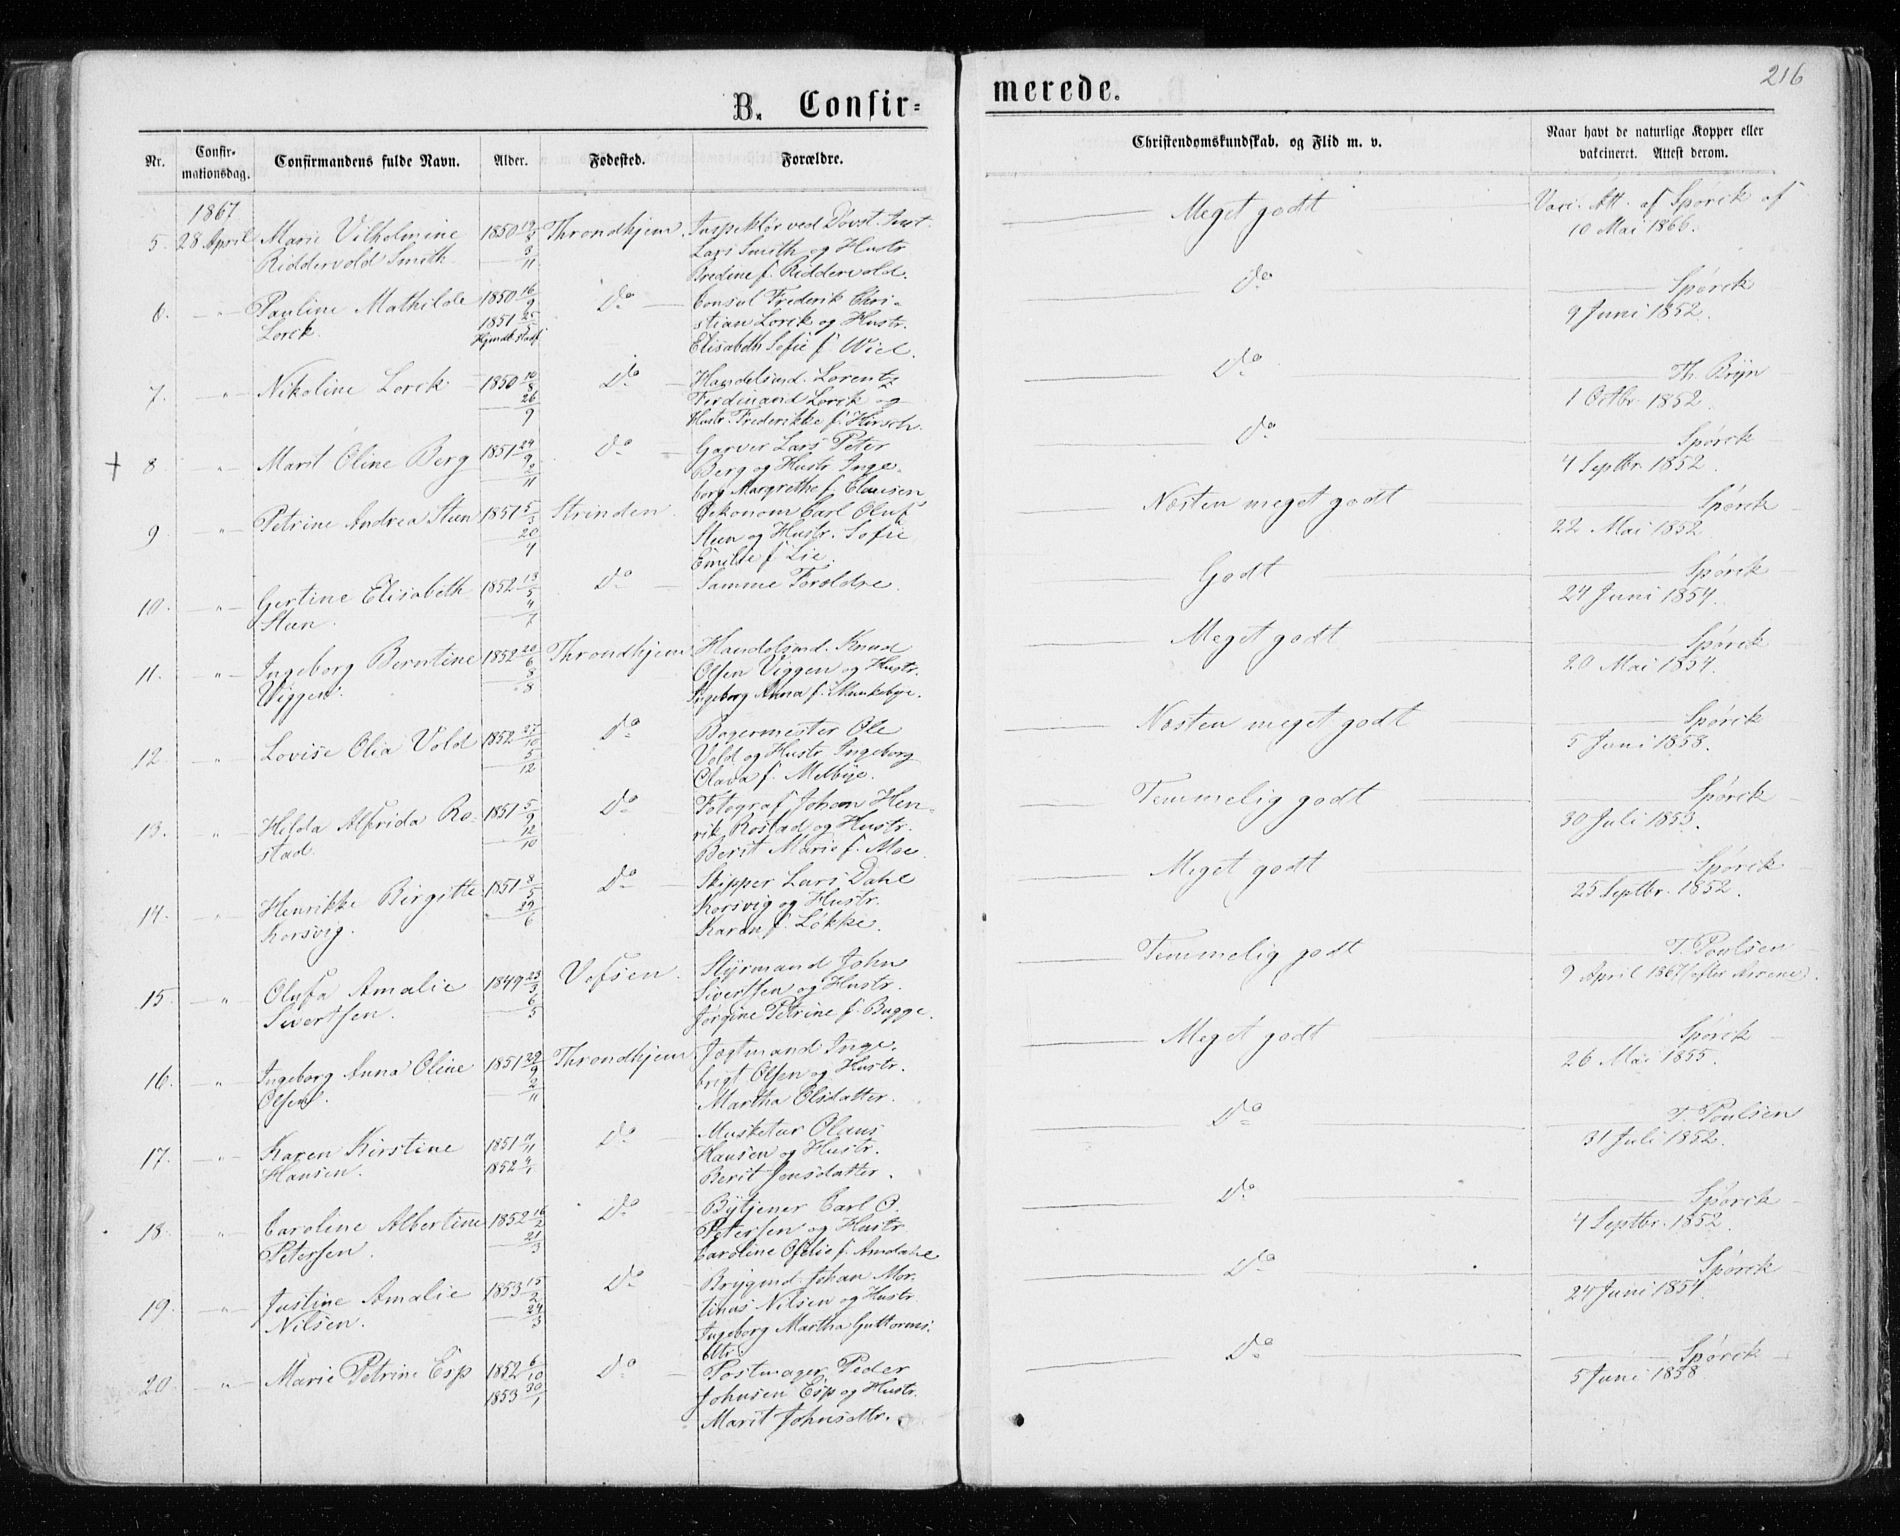 216
B. Confir=
merede.
Nr.
Confir-
mationsdag.
Confirmandens fulde Navn.
Alder.
Fødested.
Forældre.
Christendomskundskab, og Flid m. v.
Naar havt de naturlige Kopper eller
vakcineret. Attest derom.
1867
5. 28 April Marie Vilhelmine 1850 19/8 Throndhjem. Inspektør ved Døvst. Inst. Meget godt Vacc. Att. af Spørck af
Riddervold Smith 3/11 Lars Smith og Hustr. 10 Mai 1866.
Bredine f. Riddervold.
6. " Pauline Mathilde 1850 16/9 Do Consul Frederik Chri- Do Spørck
Lorck. 1851 25/5 stian Lorck og Hustr. 9 Juni 1852.
Hjemdøbt Stadf. Elisabeth Sofie f. Wiel.
7. " Nikoline Lorck 1850 10/8 Do Handelsmd. Lorentz Do Th. Bryn
26/9 Ferdinand Lorck og 1 Octbr. 1852.
Hustr. Frederikke f. Hirsch.
+ 8 " Marit Oline Berg 1851 24/9 Do Garver Lars Peter Do Spørck
2/11 Berg og Hustr. Inge- 4 Septbr. 1852.
borg Margrethe f. Clausen
9 " Petrine Andrea Steen 1851 5/3 Strinden. Oekonom Carl Oluf Næsten meget godt Spørck
20/4 Steen og Hustr. Sofie 22 Mai 1852.
Emilie f. Lie.
10. " Gertine Elisabeth 1852 13/5 Do Samme Forældre. Godt Spørck
Steen. 4/7 24 Juni 1854.
11. " Ingeborg Berntine 1852 20/6 Throndhjem Handelsmd. Knud Meget godt Spørck
Viggen. 8/8 Olsen Viggen og Hustr. 20 Mai 1854.
Ingeborg Anna f. Munkebye.
12. " Lovise Olia Vold 1852 27/10 Do Bagermester Ole Næsten meget godt Spørck
5/12 Vold og Hustr. Ingeborg 5 Juni 1858.
Olava f. Melbye.
13. " Hilda Alfrida Ro- 1851 5/9 Do Fotograf Johan Hen- Temmelig godt Spørck
stad. 12/10 rik Rostad og Hustr. 30 Juli 1853.
Berit Marie f. Moe.
14. " Henrikke Birgitte 1851 8/5 Do Skipper Lars Dahl Meget godt Spørck
Korsvig. 29/6 Korsvig og Hustr. 25 Septbr. 1852.
Karen f. Løkke.
15. " Olufa Amalie 1849 23/3 Vefsen. Styrmand John Temmelig godt T. Poulsen
Sivertsen. 6/5 Sivertsen og Hustr. 9 April 1867 (efter Arrene).
Jørgine Petrine f. Bugge.
16. " Ingeborg Anna Oline 1851 29/9 Throndhjem Jægtmand Inge- Meget godt Spørck
Olsen. 2/11 brigt Olsen og Hustr. 26 Mai 1855.
Martha Olsdatter.
17. " Karen Kirstine 1851 11/11 Do Musketør Olaus Do T. Poulsen
Hansen. 1852 4/1 Hansen og Hustr. 31 Juli 1852.
Berit Jensdatter.
18. " Caroline Albertine 1852 16/2 Do Bytjener Carl O. Do Spørck
Petersen. 21/3 Petersen og Hustr. 4 Septbr. 1852.
Caroline Ofelie f. Amdahl
19. " Justine Amalie 1853 15/2 Do Brygmd. Johan Mor- Do Spørck
Nilsen. 24/3 tinus Nilsen og Hustr. 24 Juni 1854.
Ingeborg Martha Guttorms-
dttr.
20 " Marie Petrine Esp 1852 6/10 Do Postmager Peder Do Spørck
1853 30/1 Johnsen Esp og Hustr. 5 Juni 1858
Marit Johnsdttr.